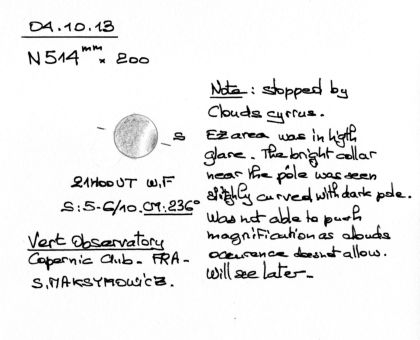 04.10.13
N514mm x 200
S
21H00UT W,F
S:5-6/10. CM:236°
Vert Observatory
Copernic Club - FRA -
S.MAKSYMOWICZ.
Note : stopped by
Clouds cyrrus.
EZ area was in higth
glare. The bright collar
near the pôle was seen
slighly curved with dark pole.
Was not able to push
magnification as clouds
occurence doesnot allow.
Will see later _